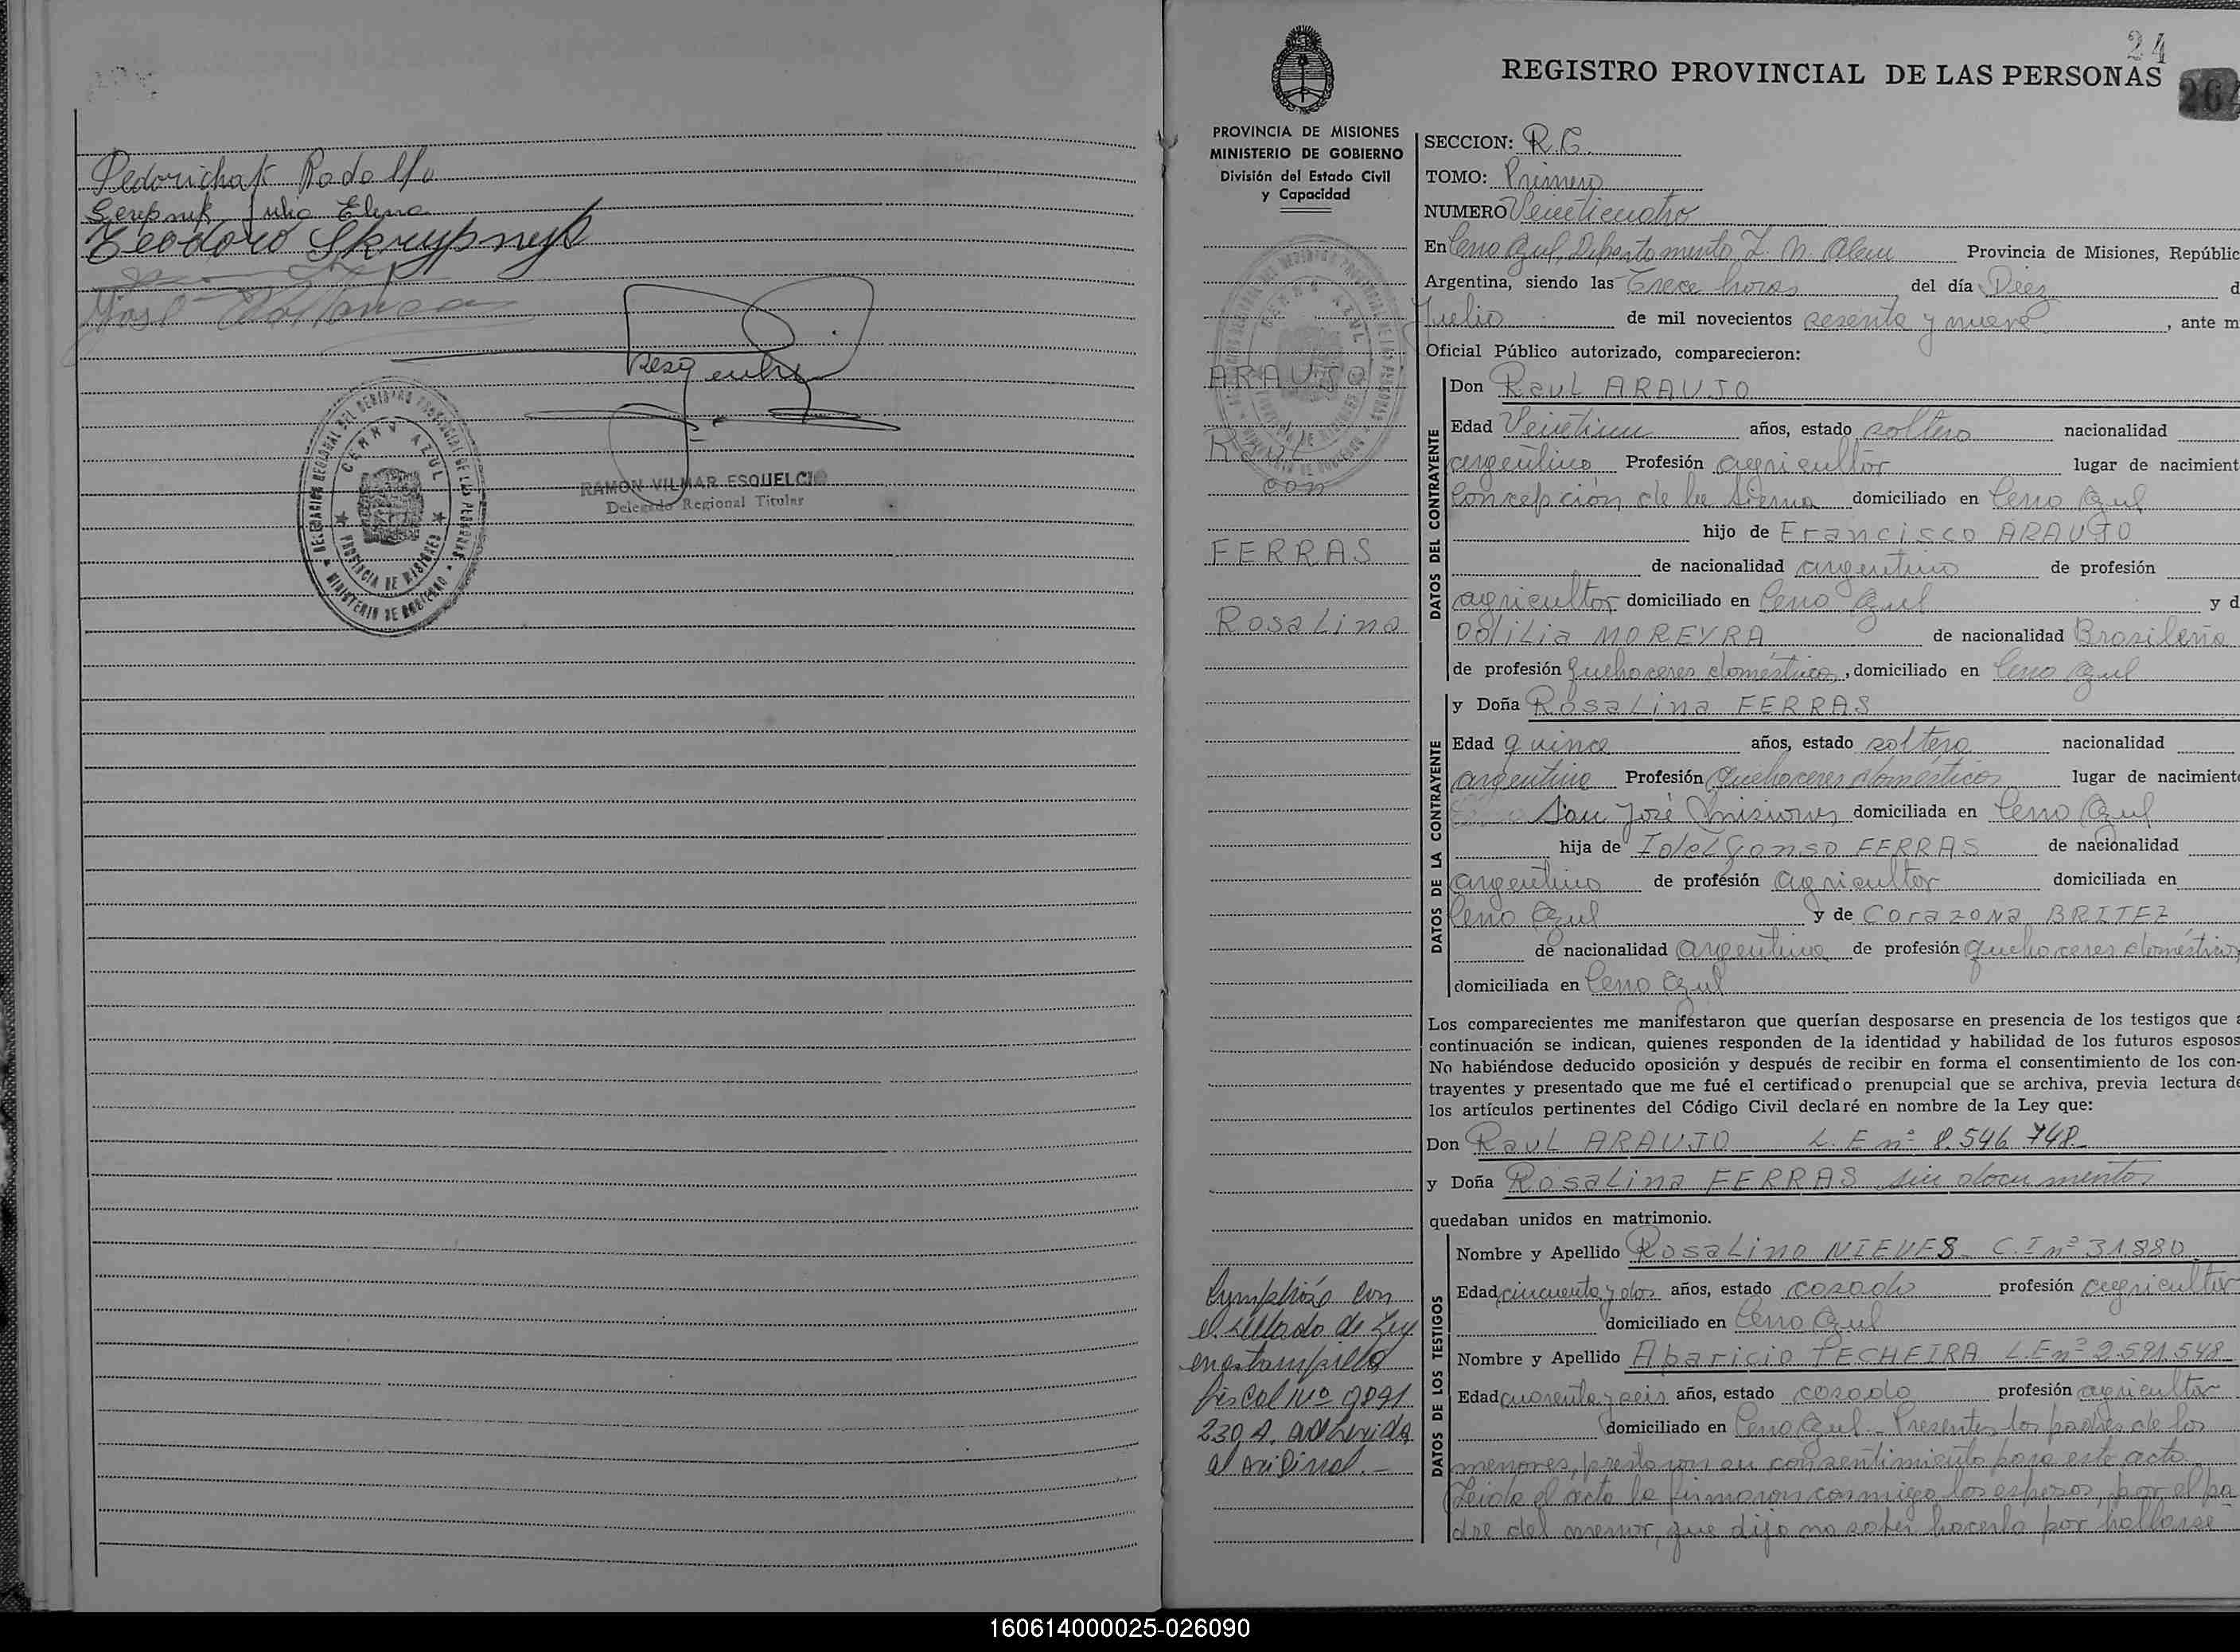 Pedorichak Rodolfo
Serepnik Julia Elena
Teodoro Skrypnyk
José
RAMON VILMAR ESQUELCIO
Delegado Regional Titular
DELEGACION REGIONAL DEL REGISTRO PROVINCIAL DE LAS PERSONAS
CERRO AZUL
PROVINCIA DE MISIONES
MINISTERIO DE GOBIERNO
24
REGISTRO PROVINCIAL DE LAS PERSONAS
264
PROVINCIA DE MISIONES
MINISTERIO DE GOBIERNO
División del Estado Civil
y Capacidad
ARAUJO
Raul
con
FERRAS
Rosalina
Cumplióse con
el sellado de Ley
en estampilla
fiscal Nº 9891
230 A. adherida
al original.-
SECCION: R.C.
TOMO: Primero
NUMERO Veinticuatro
En Cerro Azul, Departamento L. N. Alem Provincia de Misiones, Repúblic
Argentina, siendo las Trece horas del día Diez d
Julio de mil novecientos sesenta y nueve, ante m
Oficial Público autorizado, comparecieron:
DATOS DEL CONTRAYENTE
Don Raul ARAUJO
Edad Veintiun años, estado soltero nacionalidad
argentino Profesión agricultor lugar de nacimient
Concepción de la Sierra domiciliado en Cerro Azul
hijo de Francisco ARAUJO
de nacionalidad argentino de profesión
agricultor domiciliado en Cerro Azul y d
Odilia MOREYRA de nacionalidad Brasileña
de profesión Quehaceres domésticos, domiciliado en Cerro Azul
DATOS DE LA CONTRAYENTE
y Doña Rosalina FERRAS
Edad quince años, estado soltera nacionalidad
argentina Profesión Quehaceres domésticos lugar de nacimiento
San José Misiones domiciliada en Cerro Azul
hija de Idelfonso FERRAS de nacionalidad
argentino de profesión agricultor domiciliada en
Cerro Azul y de Corazona BRITEZ
de nacionalidad argentina de profesión quehaceres domésticos,
domiciliada en Cerro Azul
Los comparecientes me manifestaron que querían desposarse en presencia de los testigos que a
continuación se indican, quienes responden de la identidad y habilidad de los futuros esposos
No habiéndose deducido oposición y después de recibir en forma el consentimiento de los con-
trayentes y presentado que me fué el certificado prenupcial que se archiva, previa lectura de
los artículos pertinentes del Código Civil declaré en nombre de la Ley que:
Don Raul ARAUJO L. E nº 8.546.748
y Doña Rosalina FERRAS sin documento,
quedaban unidos en matrimonio.
DATOS DE LOS TESTIGOS
Nombre y Apellido Rosalino NIEVES C.I nº 31.880
Edad cincuenta y dos años, estado casado profesión agricultor
domiciliado en Cerro Azul
Nombre y Apellido Abaricio TECHEIRA L.E nº 2.591.548
Edad cuarenta y seis años, estado casado profesión agricultor
domiciliado en Cerro Azul - Presentes los padres de los
menores, prestaron su consentimiento para este acto.
Leida el acta la firmaron conmigo los esposos, por el pa
dre del menor, que dijo no saber hacerlo por hallarse
160614000025-026090